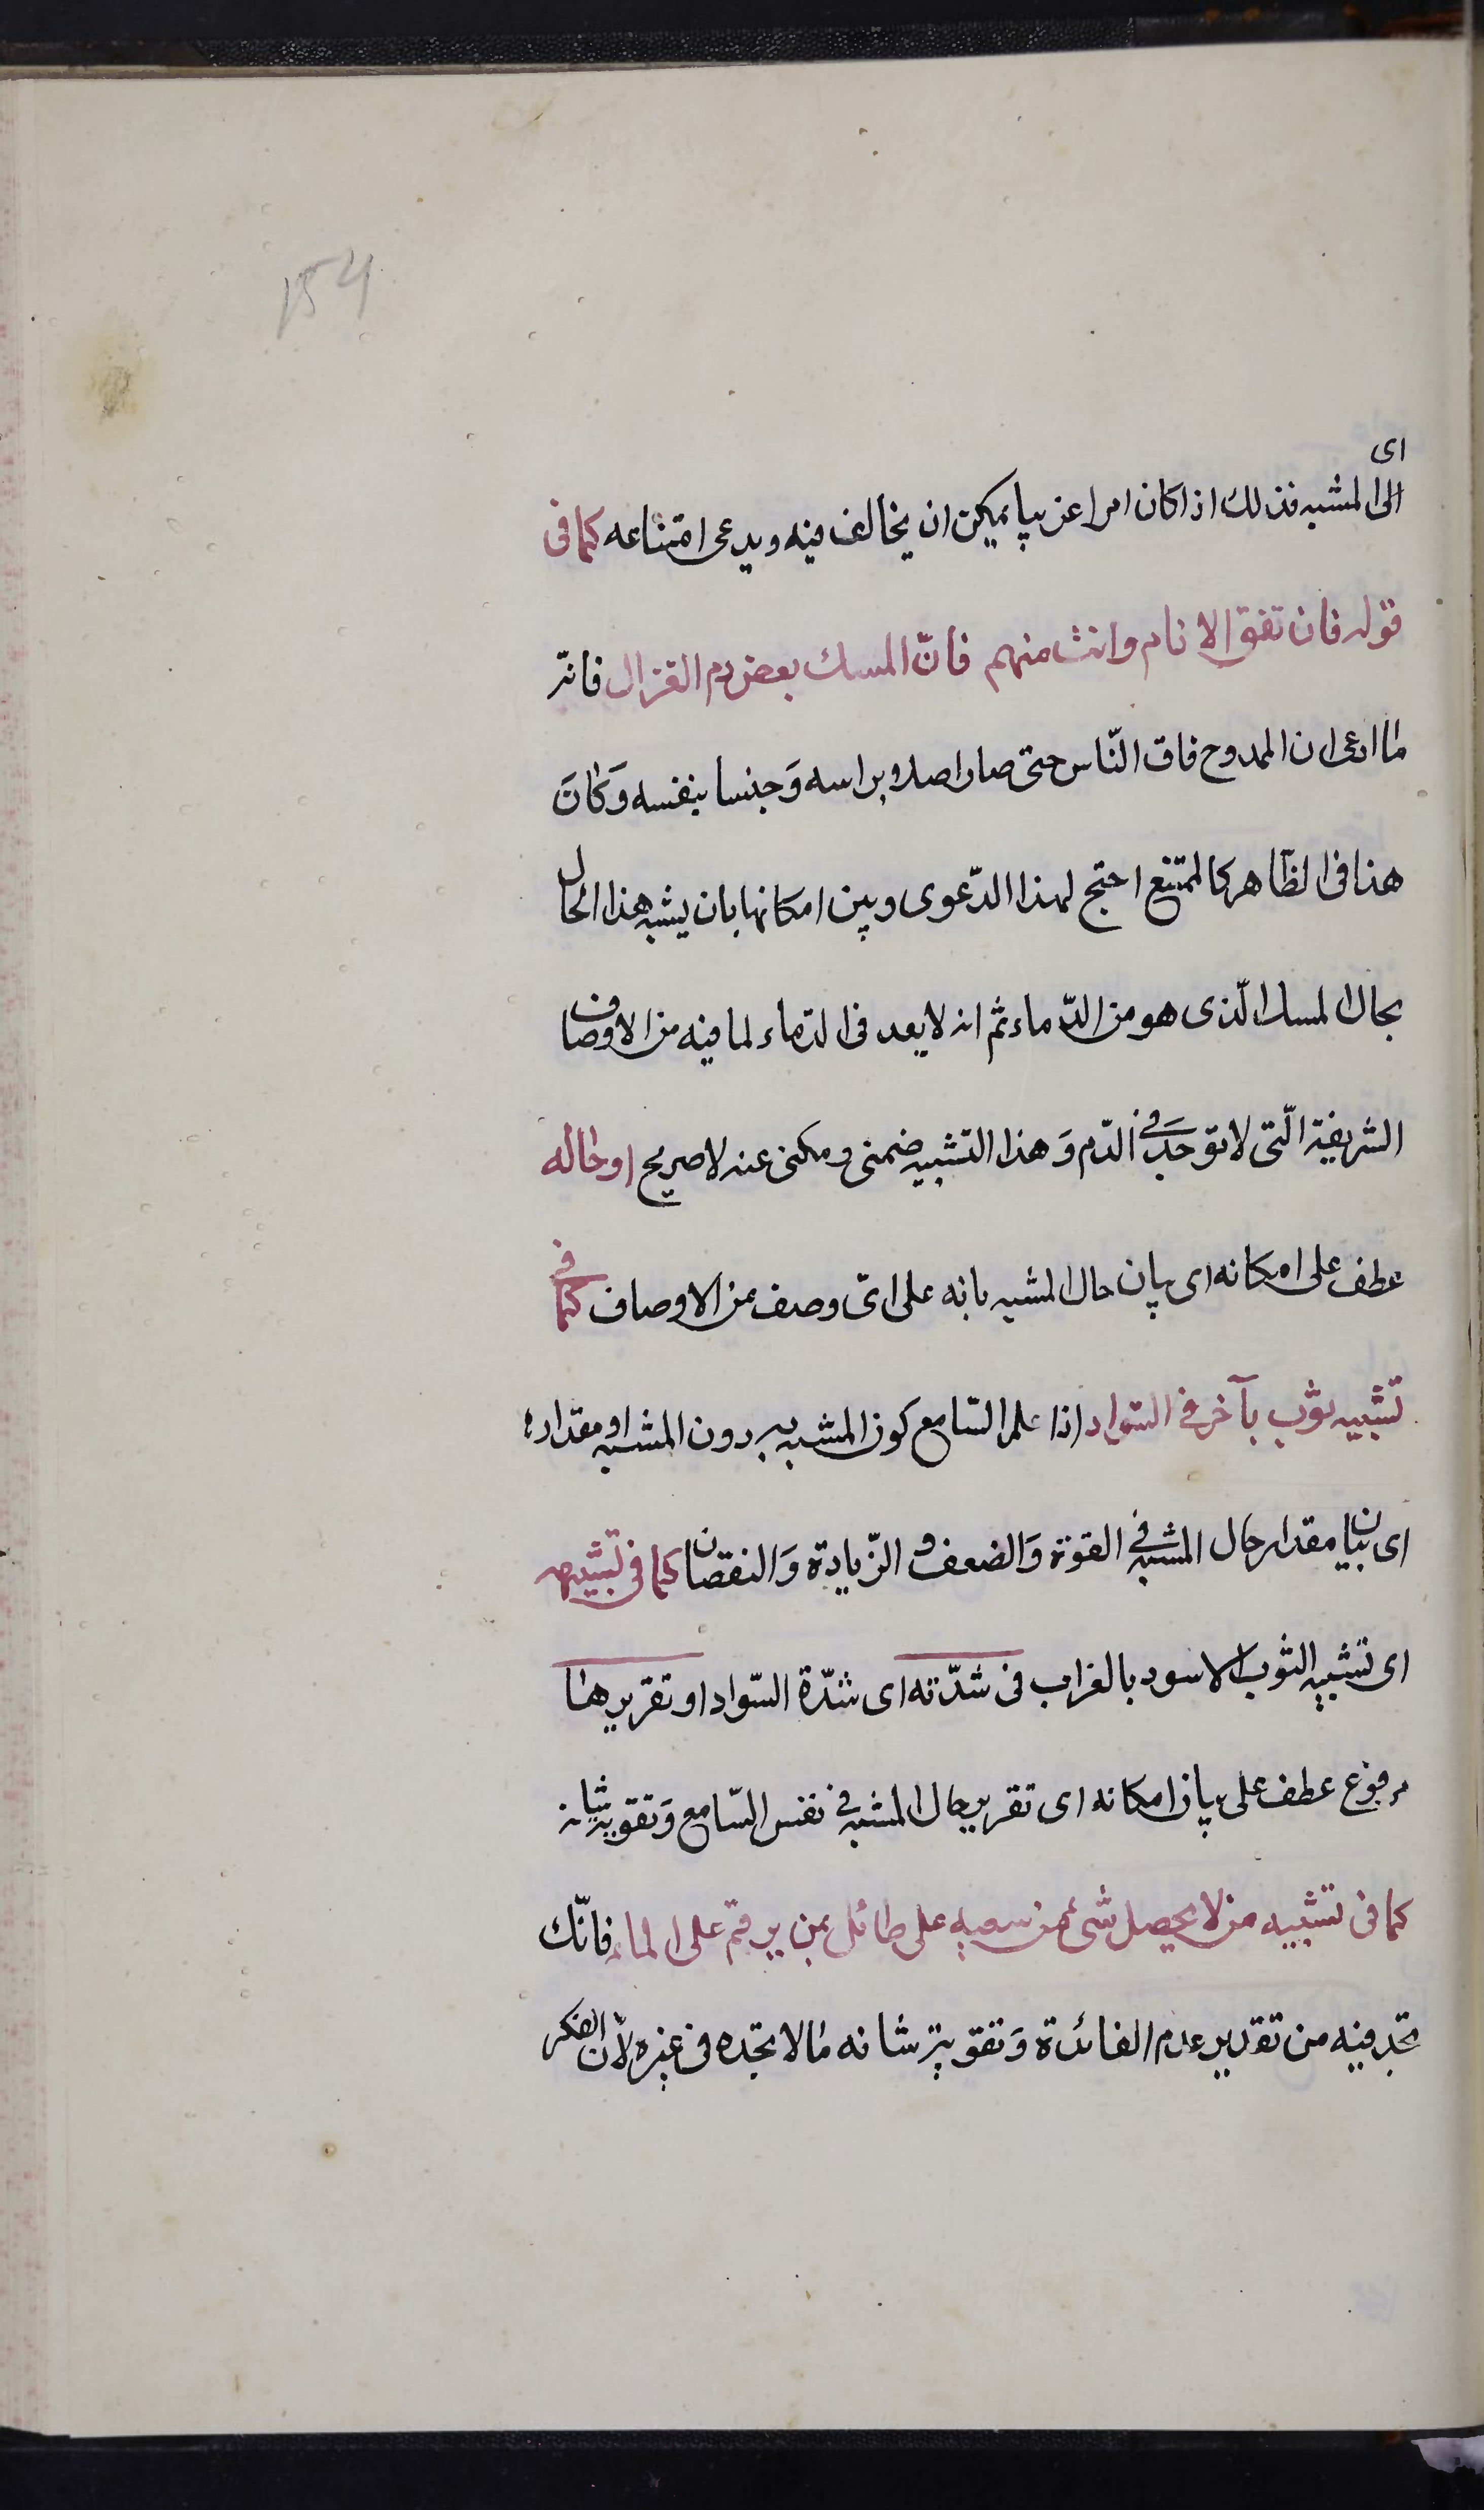 154
ای
الی المشبه فذلك اذا كان امرا غریبا یمكن ان یخالف فیه ویدعی امتناعه كما فی
قوله فان تفق الانام وانت منهم فانّ المسك بعض دم الغزال فانه
لما ادعی ان الممدوح فاق النّاس حتی صار اصلا براسه وَجنسا بنفسه وَكانَ
هذا فی الظّاهر كالممتنع احتج لهذا الدّعوی وبین امكانها بان یشبه هذا الحال
بحال المسك الّذی هو من الدّماء ثم انه لا یعد فی الدّماء لما فیه من الاوصاف
الشریفة الّتی لا توجد فی الدّم وَهذا التشبیه ضمنی ومكنی عنه لا صریح او حاله
عطف علی امكانه ای بیان حال المشبه بانه علی ایّ وصف من الاوصاف كما فی
تشبیه ثوب بآخر فی السّواد اذا علم السّامع كون المشبه به دون المشبه او مقداره
ای بیان مقدار حال المشبه فی القوة وَالضعف و الزّیادة وَالنقصان كما فی تشبیهه
ای تشبیه الثوب الاسود بالغراب فی شدّته ای شدّة السّواد او تقریرها
مرفوع عطف علی بیان امكانه ای تقریر حال المشبه فی نفس السّامع وَتقویة شانه
كما فی تشبیه من لا یحصل شیء من سعیه علی طائل بمن یرقم علی الماء فانّك
تجد فیه من تقدیر عدم الفائدة وَتقویة شانه مالا تجده فی غیره لانّ الفكر